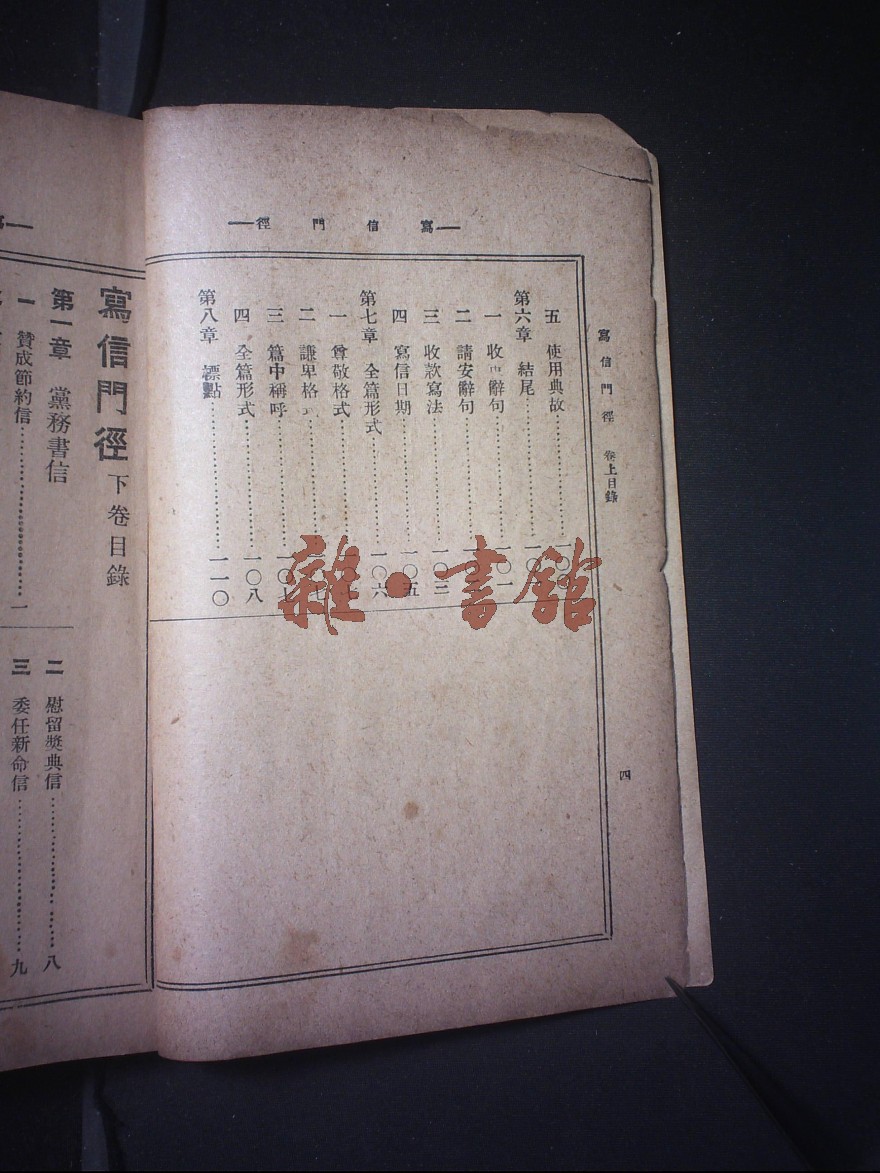 寫信門徑
寫信門徑 卷上目錄
四
五 使用典故
第六章 結尾
一 收 辭句
二 請安辭句
三 收款寫法 一〇三
四 寫信日期 一〇五
第七章 全篇形式 一〇六
一 尊敬格式
二 謙卑格
三 篇中稱呼
四 全篇形式 一〇八
第八章 標點 一一〇
雜·書館
寫信門徑 下卷目錄
第一章 黨務書信
一 贊成節約信 一
二 慰留獎典信 八
三 委任新命信 九